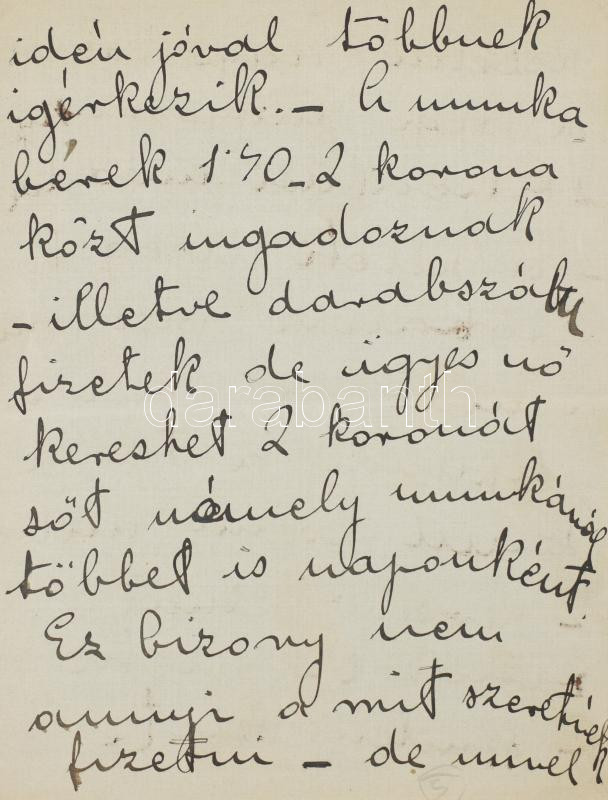 idén jóval többnek
igérkezik. – A munka
bérek 1·70–2 korona
közt ingadoznak
– illetve darabszám
fizetek de ügyes nő
kereshet 2 koronát
sőt némely munkánál
többet is naponként.
Ez bizony nem
annyi a mit szeretnék
fizetni – de mivel
darabanth